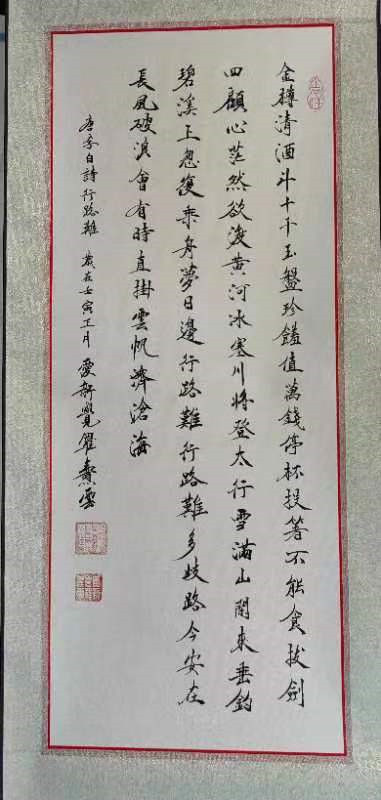 金樽清酒斗十千玉盤珍饈值萬錢停杯投箸不能食拔劍
四顧心茫然欲渡黃河冰塞川將登太行雪滿山閒來垂釣
碧溪上忽復乘舟夢日邊行路難行路難多歧路今安在
長風破浪會有時直掛雲帆濟滄海
唐李白詩行路難 歲在壬寅正月 愛新覺羅燾雲